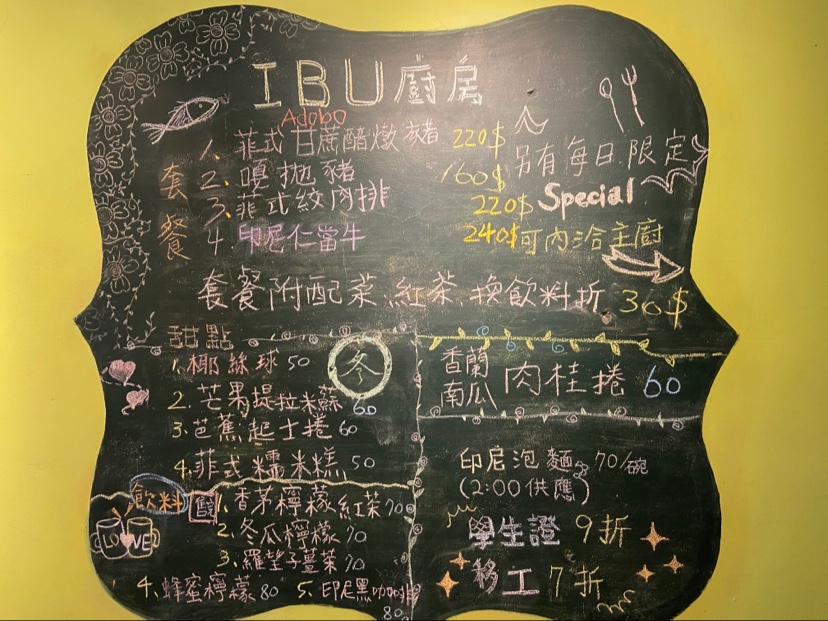 IBU廚房
Adobo
套餐
1. 菲式甘蔗醋燉豬 220$
2. 嘎拋豬 160$
3. 菲式絞肉排 220$
4. 印尼仁當牛 240$
另有每日限定
Special
可內洽主廚
套餐附配菜.紅茶.換飲料折30$
甜點
冬
1. 椰絲球 50
2. 芒果提拉米蘇 60
3. 芭蕉起士捲 60
4. 菲式糯米糕 50
香蘭南瓜 肉桂捲 60
飲料
LOVE
1. 香茅檸檬紅茶 70
2. 冬瓜檸檬 70
3. 羅望子薑茶 70
4. 蜂蜜檸檬 80
5. 印尼黑咖啡 80
印尼泡麵 70/碗
(2:00供應)
學生證 9折
移工 7折